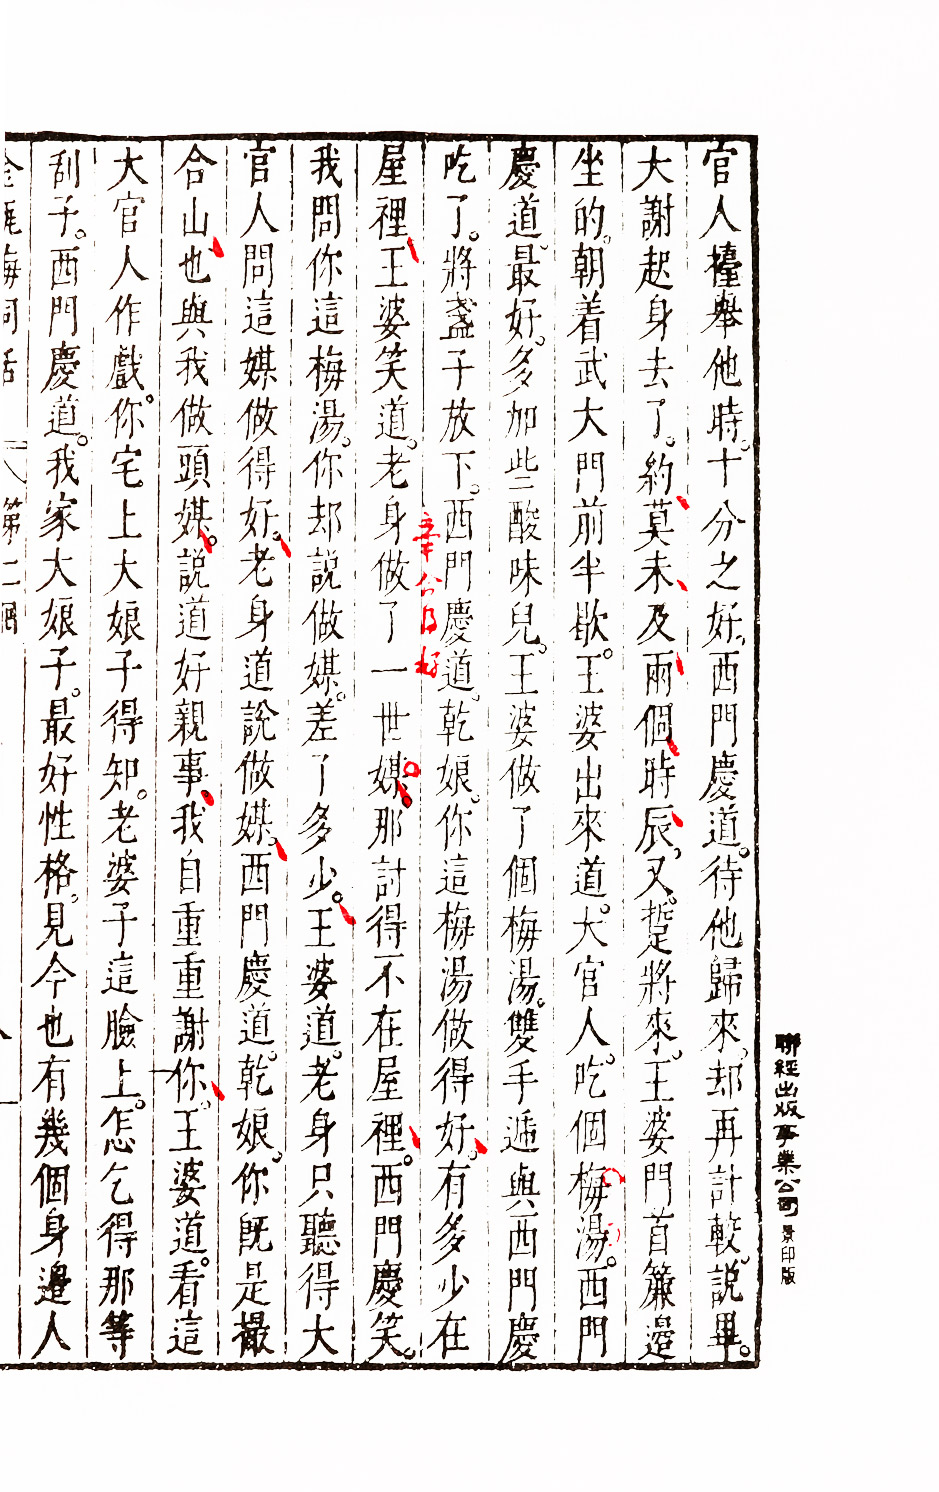 官人擡舉他時。十分之好。西門慶道。待他歸來。却再計較。說畢。
大謝起身去了。約莫未及兩個時辰。又踅將來。王婆門首簾邊
坐的。朝着武大門前半歇。王婆出來道。大官人。吃個梅湯。西門
慶道。最好。多加些酸味兒。王婆做了個梅湯。雙手遞與西門慶
吃了。將盞子放下。西門慶道。乾娘。你這梅湯做得好。有多少在
屋裡。王婆笑道。老身做了一世媒。那討得不在屋裡。西門慶笑。
我問你這梅湯。你却說做媒。差了多少。王婆道。老身只聽得大
官人問這媒做得好。老身道說做媒。西門慶道。乾娘。你旣是撮
合山。也與我做頭媒。說道好親事。我自重重謝你。王婆道。看這
大官人作戲。你宅上大娘子得知。老婆子這臉上。怎乞得那等
刮子。西門慶道。我家大娘子。最好性格。見今也有幾個身邊人
金瓶梅詞話
第二囘
聯經出版事業公司 景印版